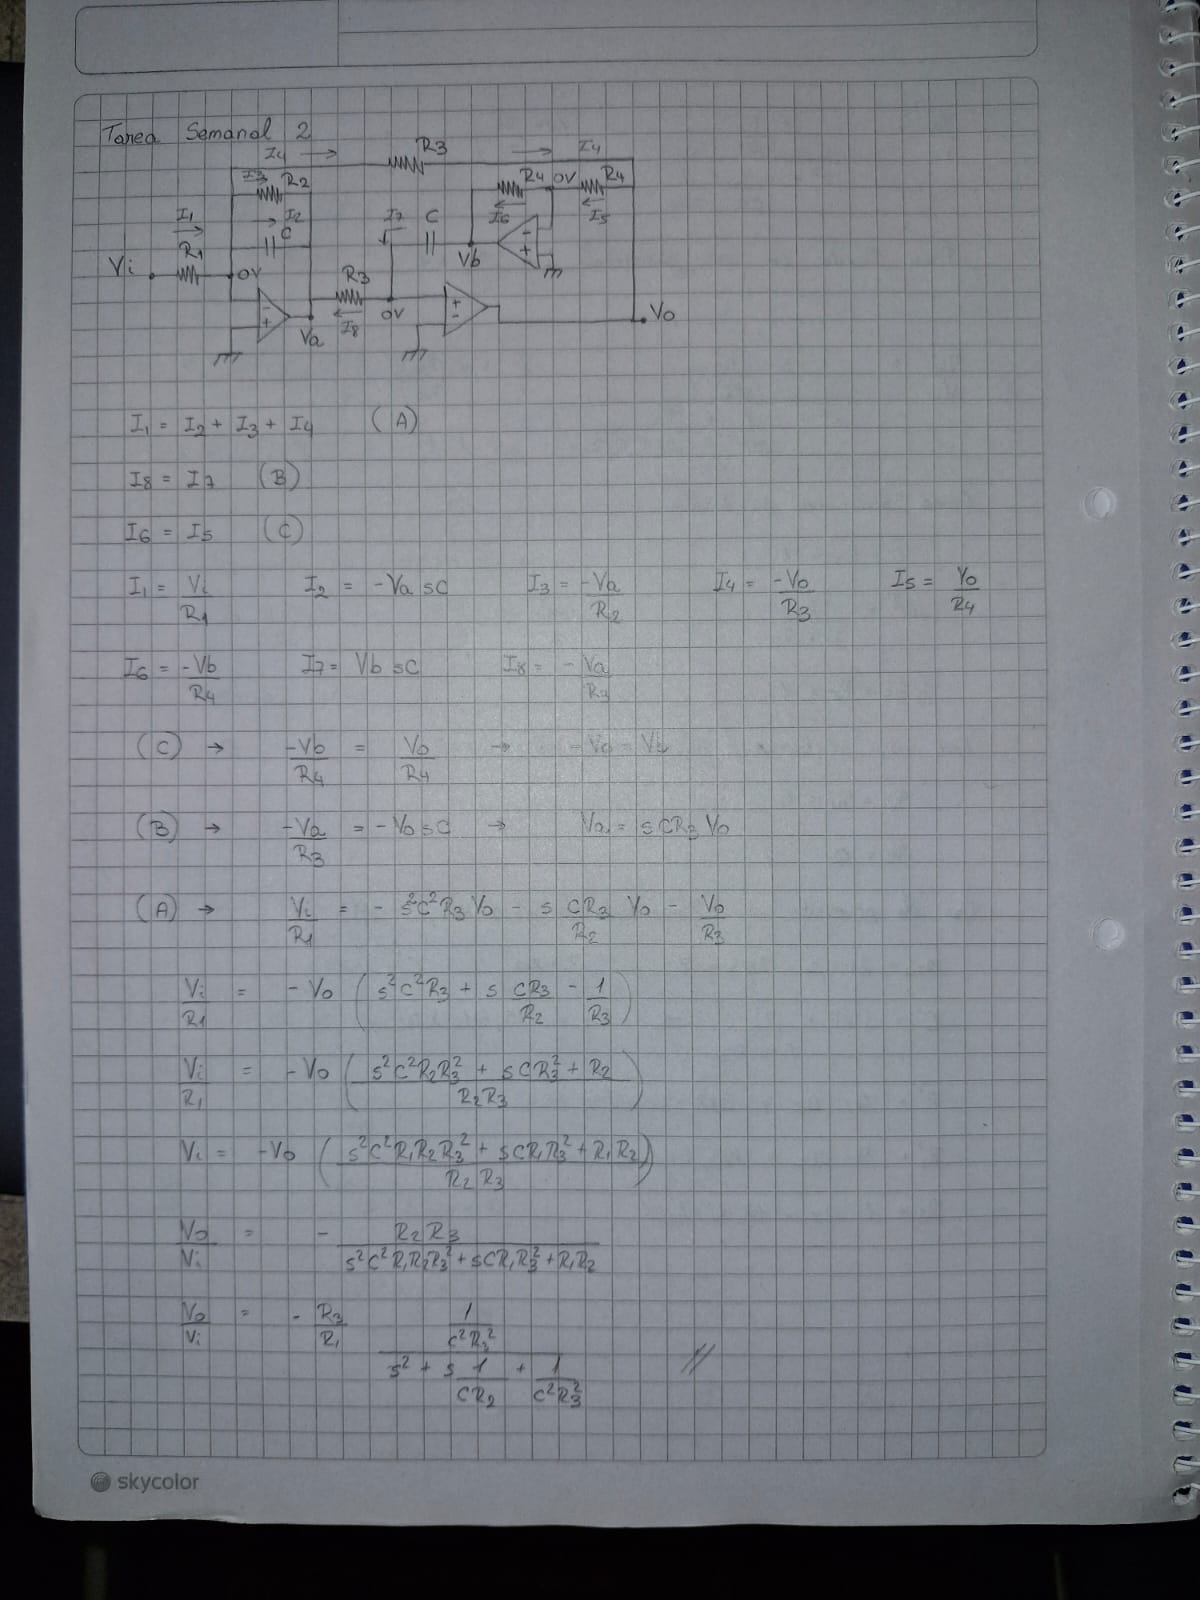 Tarea Semanal 2
I4 R3 I4
I3 R2 R4 0V R4
I1 I2 I7 C I6 I5
R1 C
Vi 0V R3 Vb - +
- + 0V + - Vo
Va I8
I1 = I2 + I3 + I4 (A)
I8 = I7 (B)
I6 = I5 (C)
I1 = Vi/R1 I2 = -Va sC I3 = -Va/R2 I4 = -Vo/R3 I5 = Vo/R4
I6 = -Vb/R4 I7 = Vb sC I8 = -Va/R3
(C) → -Vb/R4 = Vo/R4 → -Vo = Vb
(B) → -Va/R3 = -Vo sC → Va = sCR3 Vo
(A) → Vi/R1 = - s²C²R3 Vo - s CR3/R2 Vo - Vo/R3
Vi/R1 = -Vo (s²C²R3 + s CR3/R2 - 1/R3)
Vi/R1 = -Vo ((s²C²R2R3² + sCR3² + R2)/(R2R3))
Vi = -Vo ((s²C²R1R2R3² + sCR1R3² + R1R2)/(R2R3))
Vo/Vi = - R2R3/(s²C²R1R2R3² + sCR1R3² + R1R2)
Vo/Vi = - R3/R1 (1/(C²R3²))/(s² + s 1/(CR2) + 1/(C²R3²)) //
skycolor